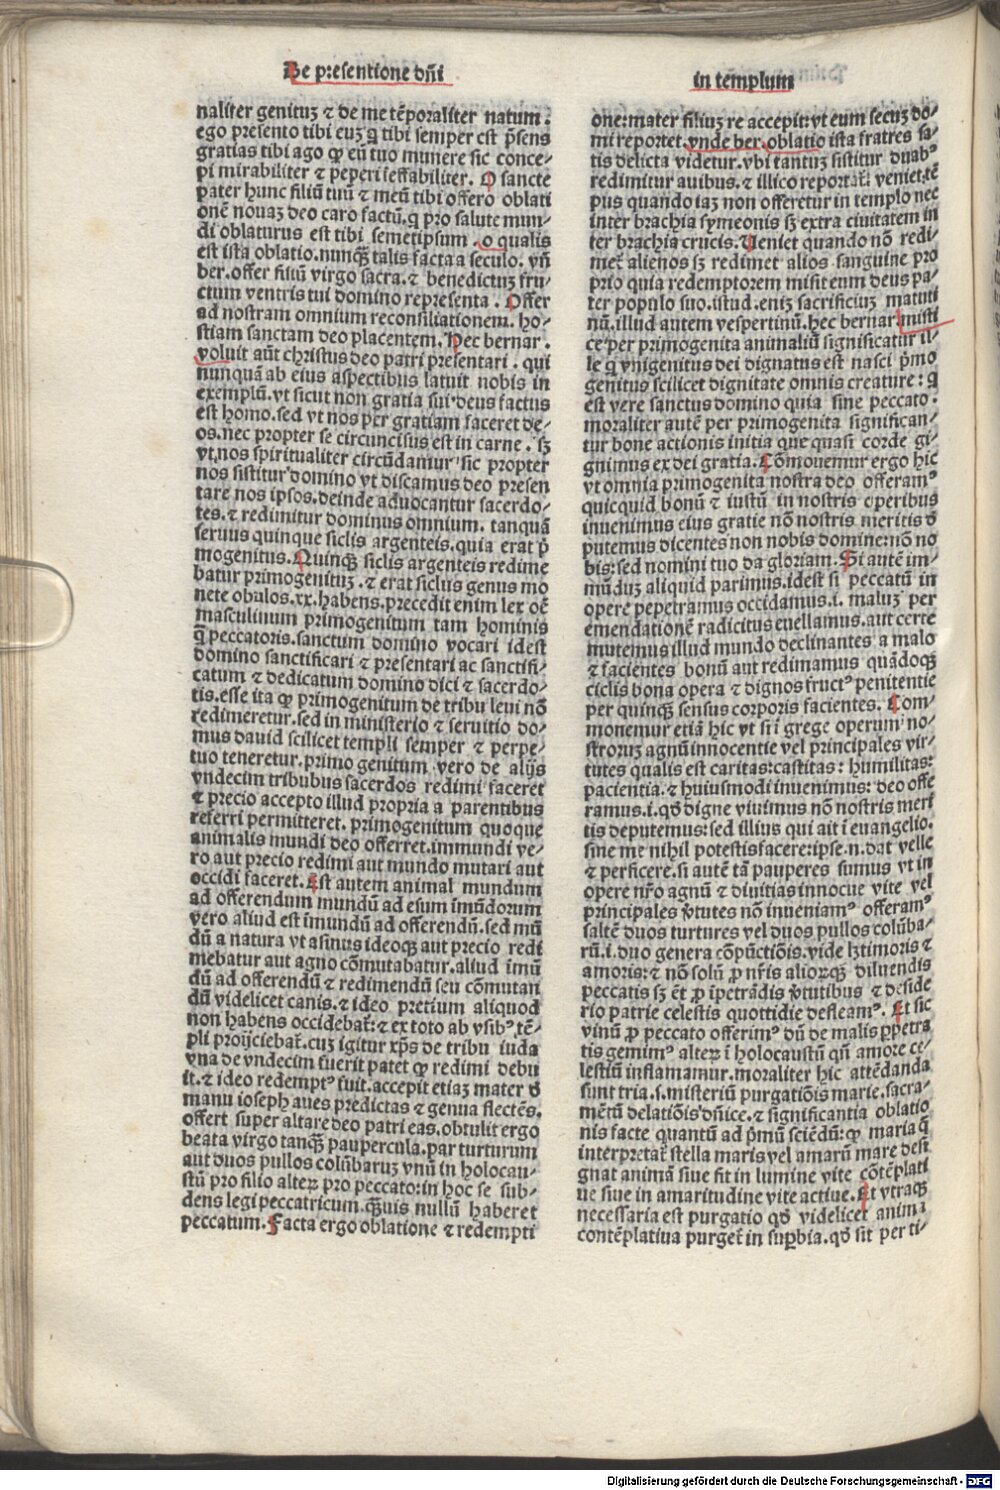 De presentione dn̄i
in templum
naliter genituʒ ⁊ de me tēporaliter natum.
ego presento tibi euʒ q̄ tibi semper est p̄sens
gratias tibi ago ꝙ eū tuo munere sic conce⸗
pi mirabiliter ⁊ peperi ieffabiliter. O sancte
pater hunc filiū tuū ⁊ meū tibi offero oblati
onē nouaʒ deo caro factū.q̄ pro salute mun⸗
di oblaturus est tibi semetipsum .o qualis
est ista oblatio.nunqꝫ talis facta a seculo. vn̄
ber.offer filiū virgo sacra.⁊ benedictuʒ fru⸗
ctum ventris tui domino representa . Offer
ad nostram omnium reconsiliationem. ho⸗
stiam sanctam deo placentem. Hec bernar .
voluit aūt christus deo patri presentari . qui
nunquā ab eius aspectibus latuit nobis in
exemplū.vt sicut non gratia sui deus factus
est homo.sed vt nos per gratiam faceret de⸗
os.nec propter se circuncisus est in carne . sʒ
vt nos spiritualiter circūdamur sic propter
nos sistitur domino vt discamus deo presen
tare nos ipsos.deinde aduocantur sacerdo⸗
tes.⁊ redimitur dominus omnium. tanquā
seruus quinque siclis argenteis.quia erat p̄
mogenitus.Quinqꝫ siclis argenteis redime
batur primogenituʒ .⁊ erat siclus genus mo
nete obulos.xx.habens.precedit enim lex oē
masculinum primogenitum tam hominis
q̄ peccatoris.sanctum domino vocari idest
domino sanctificari ⁊ presentari ac sanctifi⸗
catum ⁊ dedicatum domino dici ⁊ sacerdo⸗
tis.esse ita ꝙ primogenitum de tribu leui nō
redimeretur.sed in ministerio ⁊ seruitio do⸗
mus dauid scilicet templi semper ⁊ perpe⸗
tuo teneretur.primo genitum vero de alijs
vndecim tribubus sacerdos redimi faceret
⁊ precio accepto illud propria a parentibus
referri permitteret. primogenitum quoque
animalis mundi deo offerret.immundi ve⸗
ro aut precio redimi aut mundo mutari aut
occidi faceret. Est autem animal mundum
ad offerendum mundū ad esum īmūdorum
vero aliud est īmundū ad offerendū.sed mū
dū a natura vt asinus ideoqꝫ aut precio redi
mebatur aut agno cōmutabatur.aliud īmū
dū ad offerendū ⁊ redimendū seu cōmutan
dū videlicet canis.⁊ ideo pretium aliquod
non habens occidebat̄:⁊ ex toto ab vsibꝰ tē⸗
pli proijciebat̄.cuʒ igitur xp̄s de tribu iuda
vna de vndecim fuerit patet ꝙ redimi debu
it.⁊ ideo redemptꝰ fuit.accepit etiaʒ mater ð
manu ioseph aues predictas ⁊ genua flectēs.
offert super altare deo patri eas.obtulit ergo
beata virgo tanqꝫ paupercula.par turturum
aut duos pullos colūbaruʒ vnū in holocau⸗
stū pro filio alteꝝ pro peccato:in hoc se sub⸗
dens legi peccatricum.qꝫuis nullū haberet
peccatum. Facta ergo oblatione ⁊ redempti
one:mater filiuʒ re accepit:vt eum secuʒ do⸗
mi reportet.vnde ber.oblatio ista fratres sa⸗
tis delicta videtur.vbi tantuʒ sistitur duabꝰ
redimitur auibus.⁊ illico reportat̄. veniet tē
pus quando iaʒ non offeretur in templo nec
inter brachia symeonis sʒ extra ciuitatem in
ter brachia crucis. Veniet quando nō redi⸗
met̄ alienos sʒ redimet alios sanguine pro
prio quia redemptorem misit eum deus pa⸗
ter populo suo.istud.eniʒ sacrificiuʒ matuti
nū.illud autem vespertinū.hec bernar.misti
ce per primogenita animaliū significatur il⸗
le q̄ vnigenitus dei dignatus est nasci p̄mo
genitus scilicet dignitate omnis creature: q̄
est vere sanctus domino quia sine peccato.
moraliter autē per primogenita significan⸗
tur bone actionis initia que quasi corde gi⸗
gnimus ex dei gratia. Cōmonemur ergo hic
vt omnia primogenita nostra deo offeramꝰ
quicquid bonū ⁊ iustū in nostris operibus
inuenimus eius gratie nō nostris meritis ð
putemus dicentes non nobis domine:nō no
bis:sed nomini tuo da gloriam. Si autē im⸗
mūduʒ aliquid parimus.idest si peccatū in
opere pepetramus occidamus.i. maluʒ per
emendationē radicitus euellamus.aut certe
mutemus illud mundo declinantes a malo
⁊ facientes bonū aut redimamus quādoqꝫ
ciclis bona opera ⁊ dignos fructꝰ penitentie
per quinqꝫ sensus corporis facientes. Com⸗
monemur etiā hic vt si ī grege operum no⸗
stroruʒ agnū innocentie vel principales vir⸗
tutes qualis est caritas:castitas: humilitas:
pacientia.⁊ huiusmodi inuenimus: deo offe
ramus.i.qð digne viuimus nō nostris meri
tis deputemus:sed illius qui ait ī euangelio.
sine me nihil potestis facere:ipse.n.dat velle
⁊ perficere.si autē tā pauperes sumus vt in
opere nr̄o agnū ⁊ diuitias innocue vite vel
principales v̄tutes nō inueniamꝰ offeramꝰ
saltē duos turtures vel duos pullos colūba⸗
rū.i.duo genera cōpūctiōis.vide lʒ timoris ⁊
amoris:⁊ nō solū ꝓ nr̄is alioꝝqꝫ diluendis
peccatis sʒ ēt ꝓ īpetrādis v̄tutibus ⁊ deside
rio patrie celestis quottidie defleamꝰ. Et sic
vinū ꝓ peccato offerimꝰ dū de malis ꝑpetra
tis gemimꝰ alteꝝ ī holocaustū qn̄ amore ce⸗
lestiū inflamamur.moraliter hic attēdanda
sunt tria.s.misteriū purgatiōis marie.sacra⸗
mētū delatiōis dn̄ice.⁊ significantia oblatio
nis facte quantū ad p̄mū sciēdū:ꝙ maria q̄
interpretat̄ stella maris vel amarū mare desi
gnat animā siue sit in lumine vite cōtēplati
ue siue in amaritudine vite actiue. Et vtraqꝫ
necessaria est purgatio qð videlicet anima
contēplatiua purget̄ in suꝑbia.qð sit per ti⸗
Digitalisierung gefördert durch die Deutsche Forschungsgemeinschaft - DFG